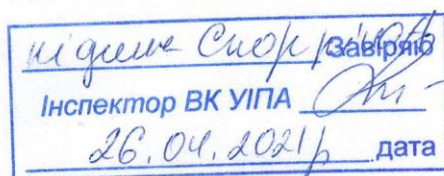 підпис Завіряю
Інспектор ВК УІПА
26.04.2021р дата